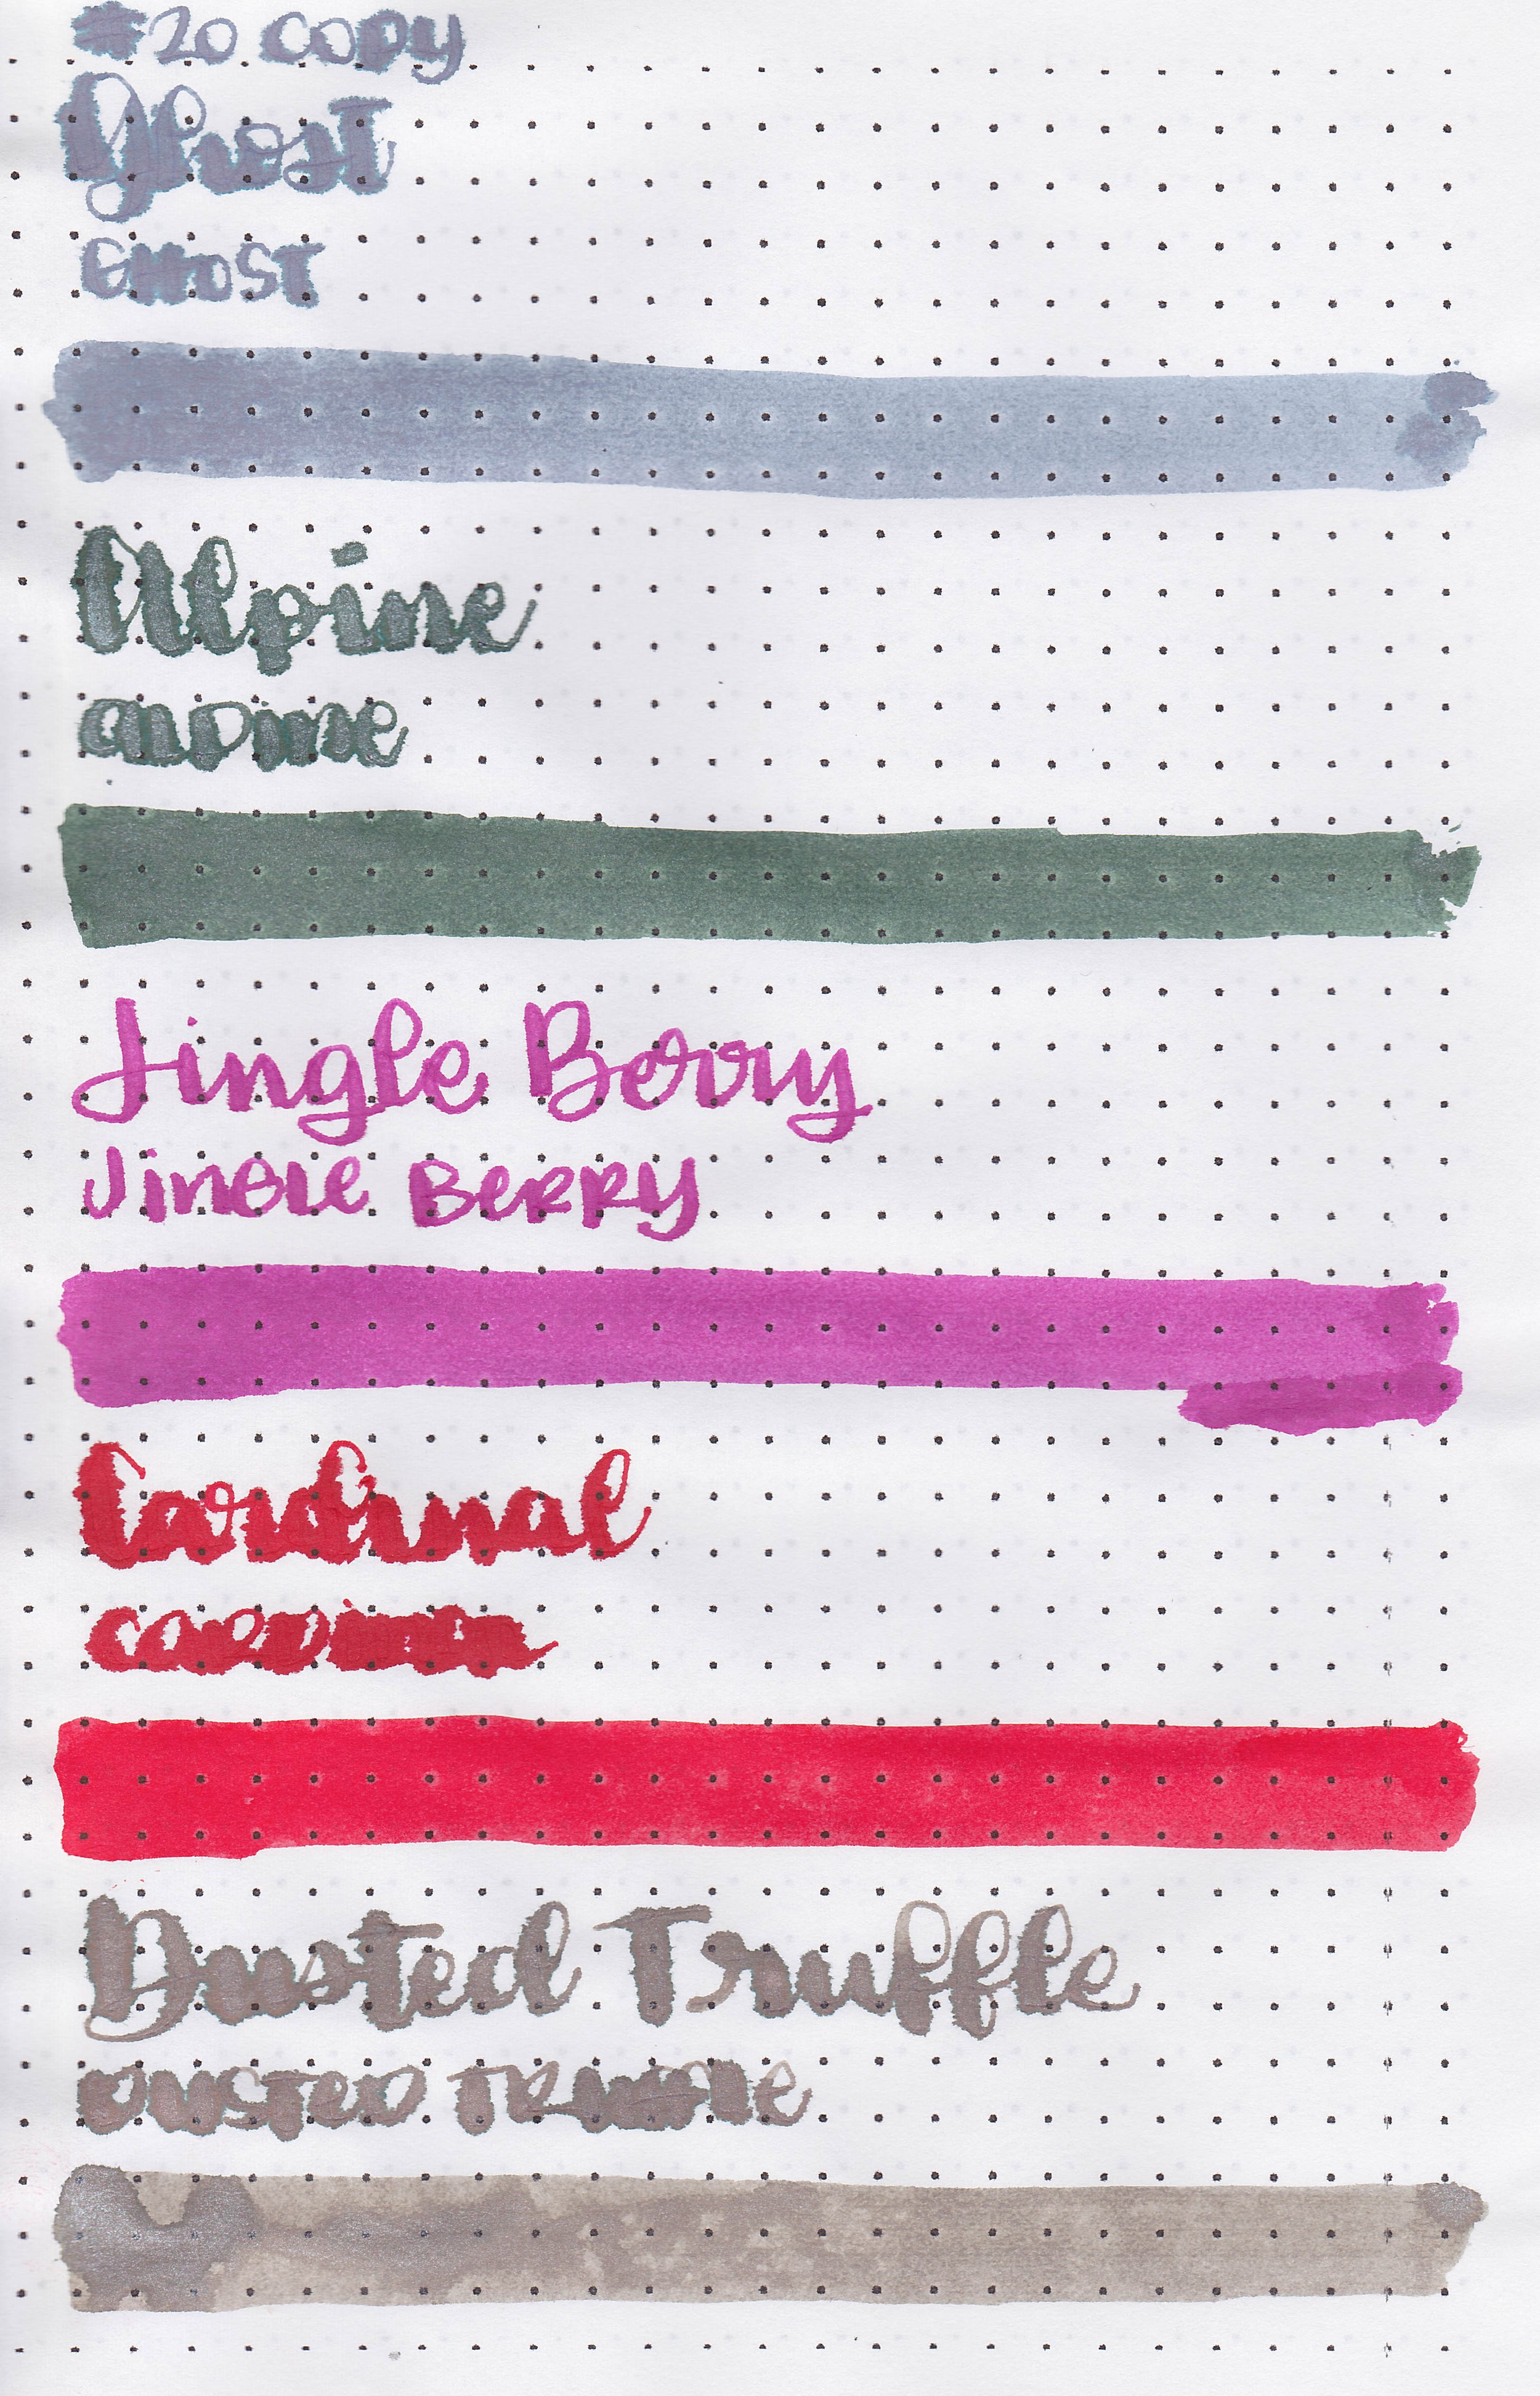 #20 COPY
Ghost
GHOST
Alpine
alpine
Jingle Berry
JinGle BeRRy
Cardinal
CARDinal
Dusted Truffle
DUSTeD TRuffle